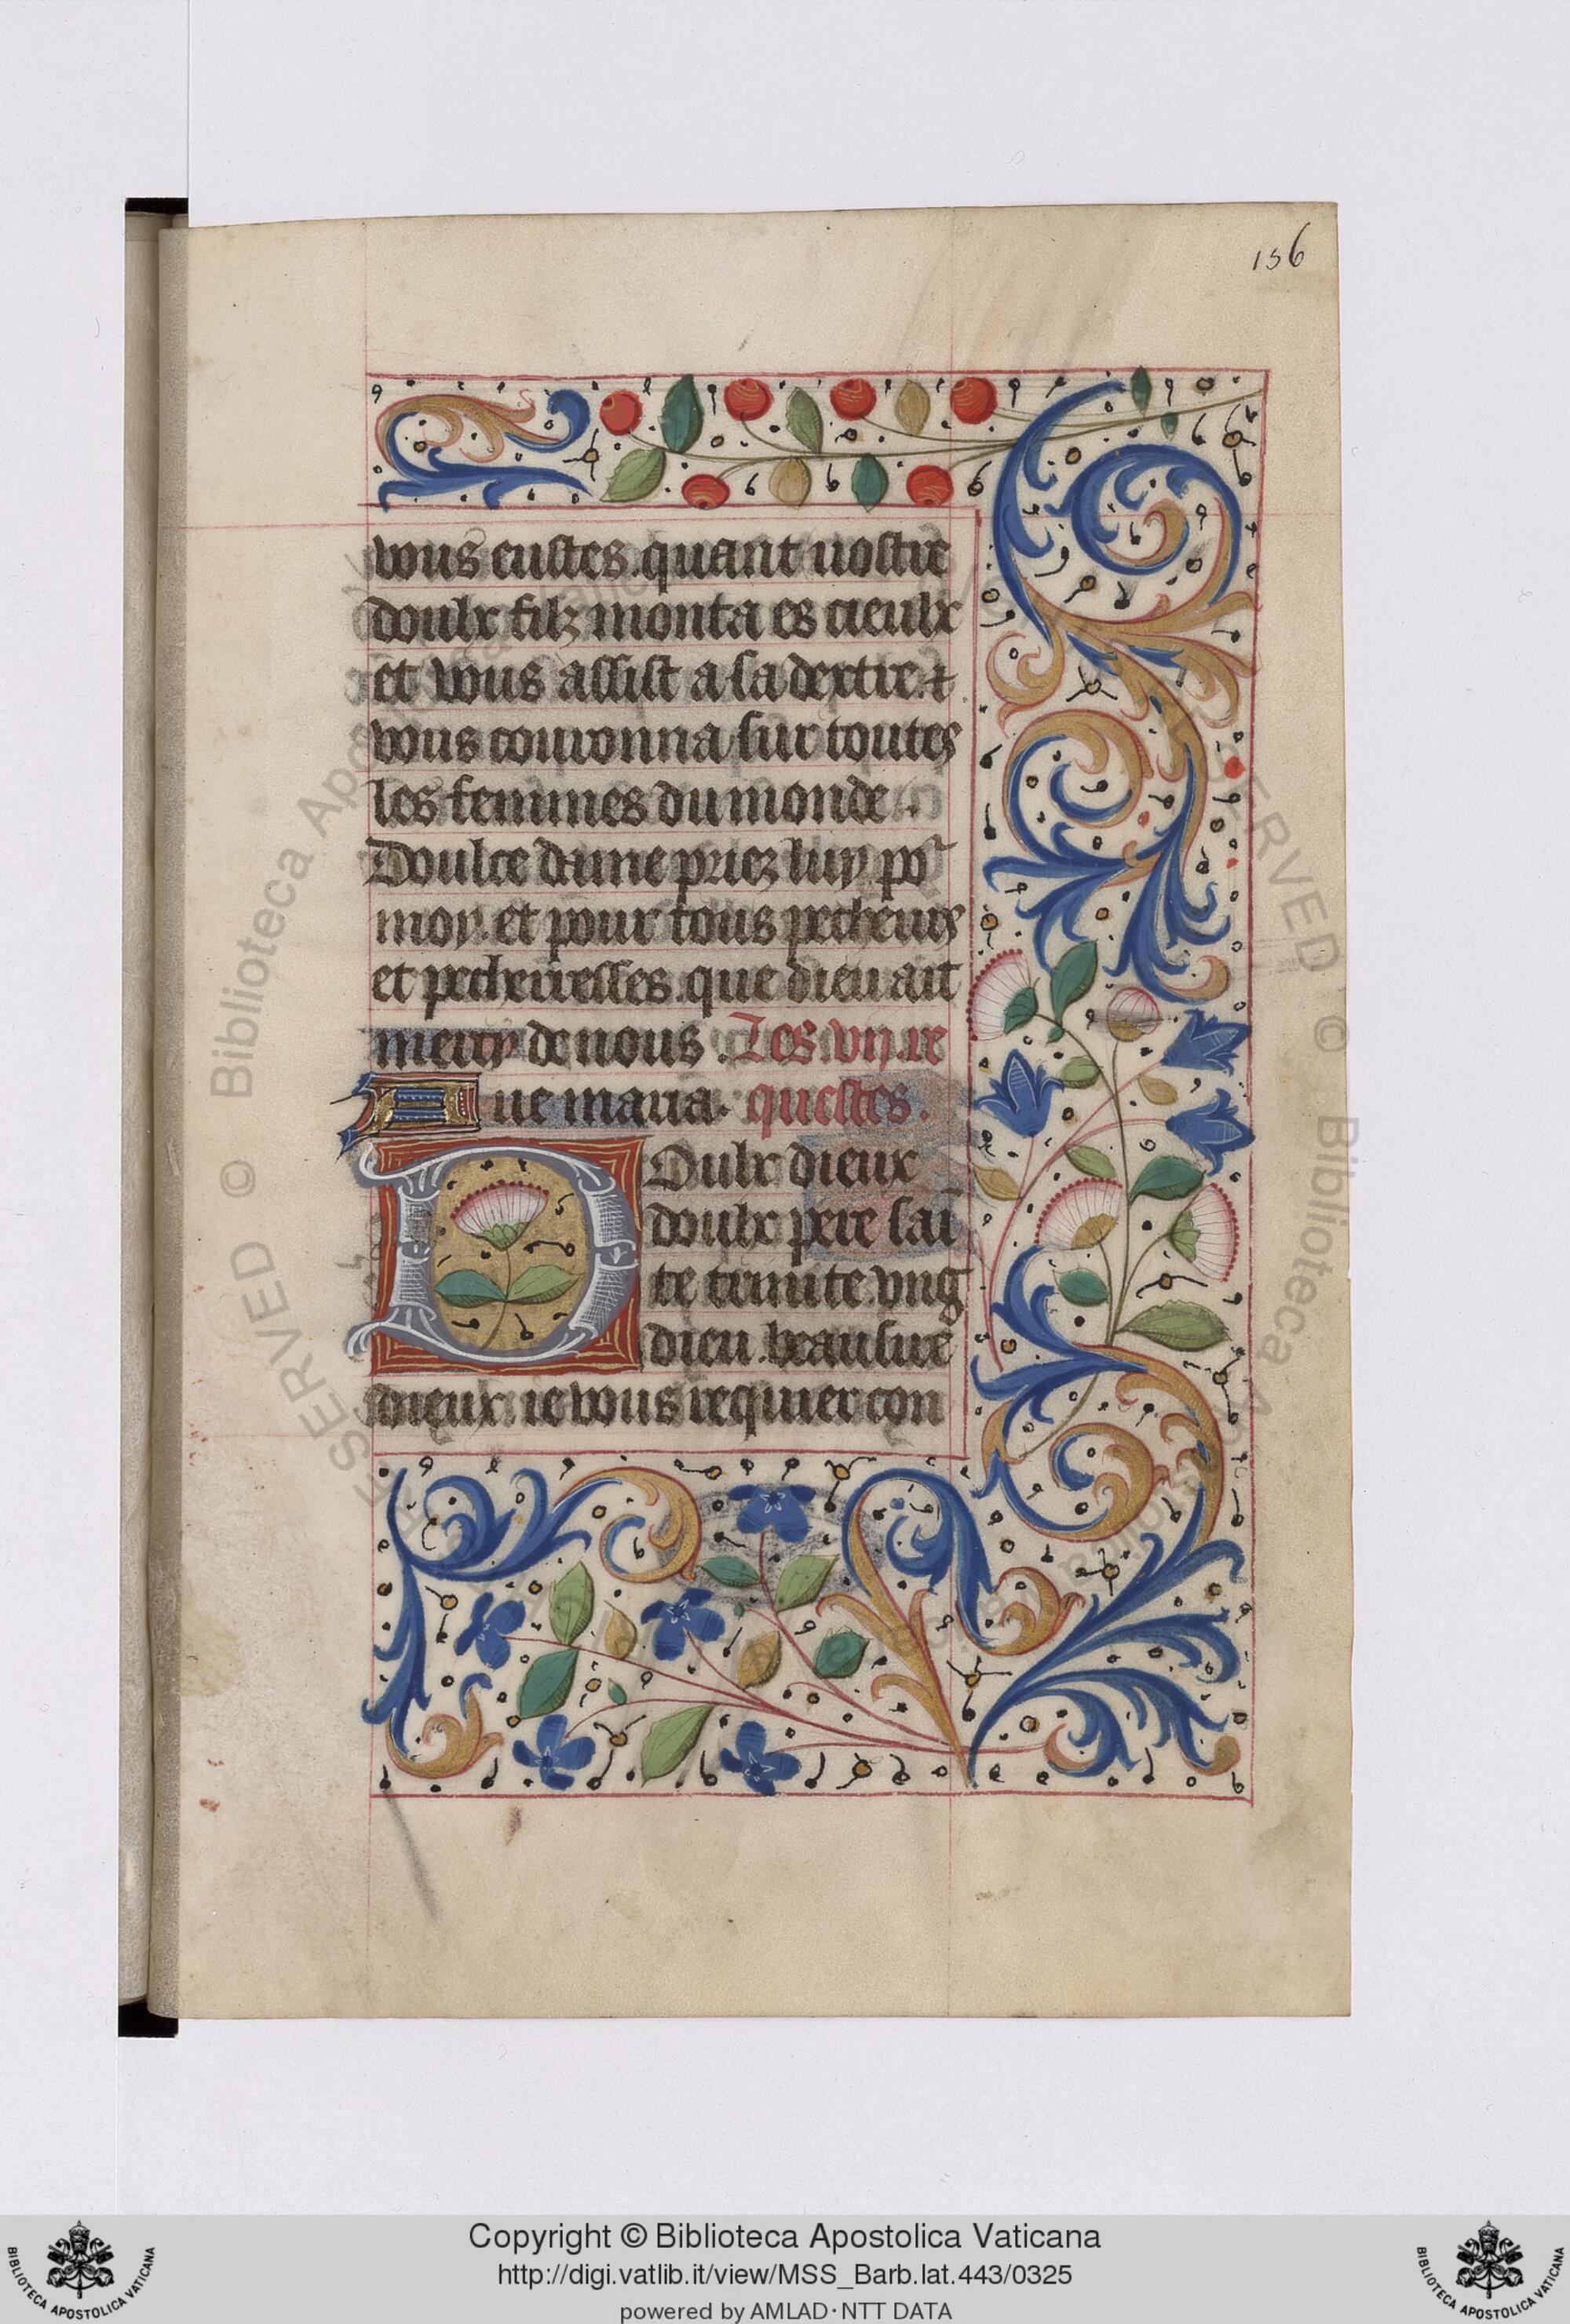 156
vous eustes. quant uostre
doulx filz monta es cieulx
et vous assist a sa dextre. ⁊
vous couronna sur toutes
les femmes du monde.
Doulce dame priez luy po͛
moy. et pour tous pecheurs
et pecheresses. que dieu ait
mercy de nous. Les vij. re
Aue maria. questes.
DOulx dieux
doulx pere sai̅
te trinite. vng
dieu. beau sire
dieux. ie vous requier con
RESERVED © Biblioteca Apostolica Vaticana
RESERVED © Biblioteca Apostolica Vaticana
Copyright © Biblioteca Apostolica Vaticana
http://digi.vatlib.it/view/MSS_Barb.lat.443/0325
powered by AMLAD·NTT DATA
BIBLIOTECA APOSTOLICA VATICANA
BIBLIOTECA APOSTOLICA VATICANA